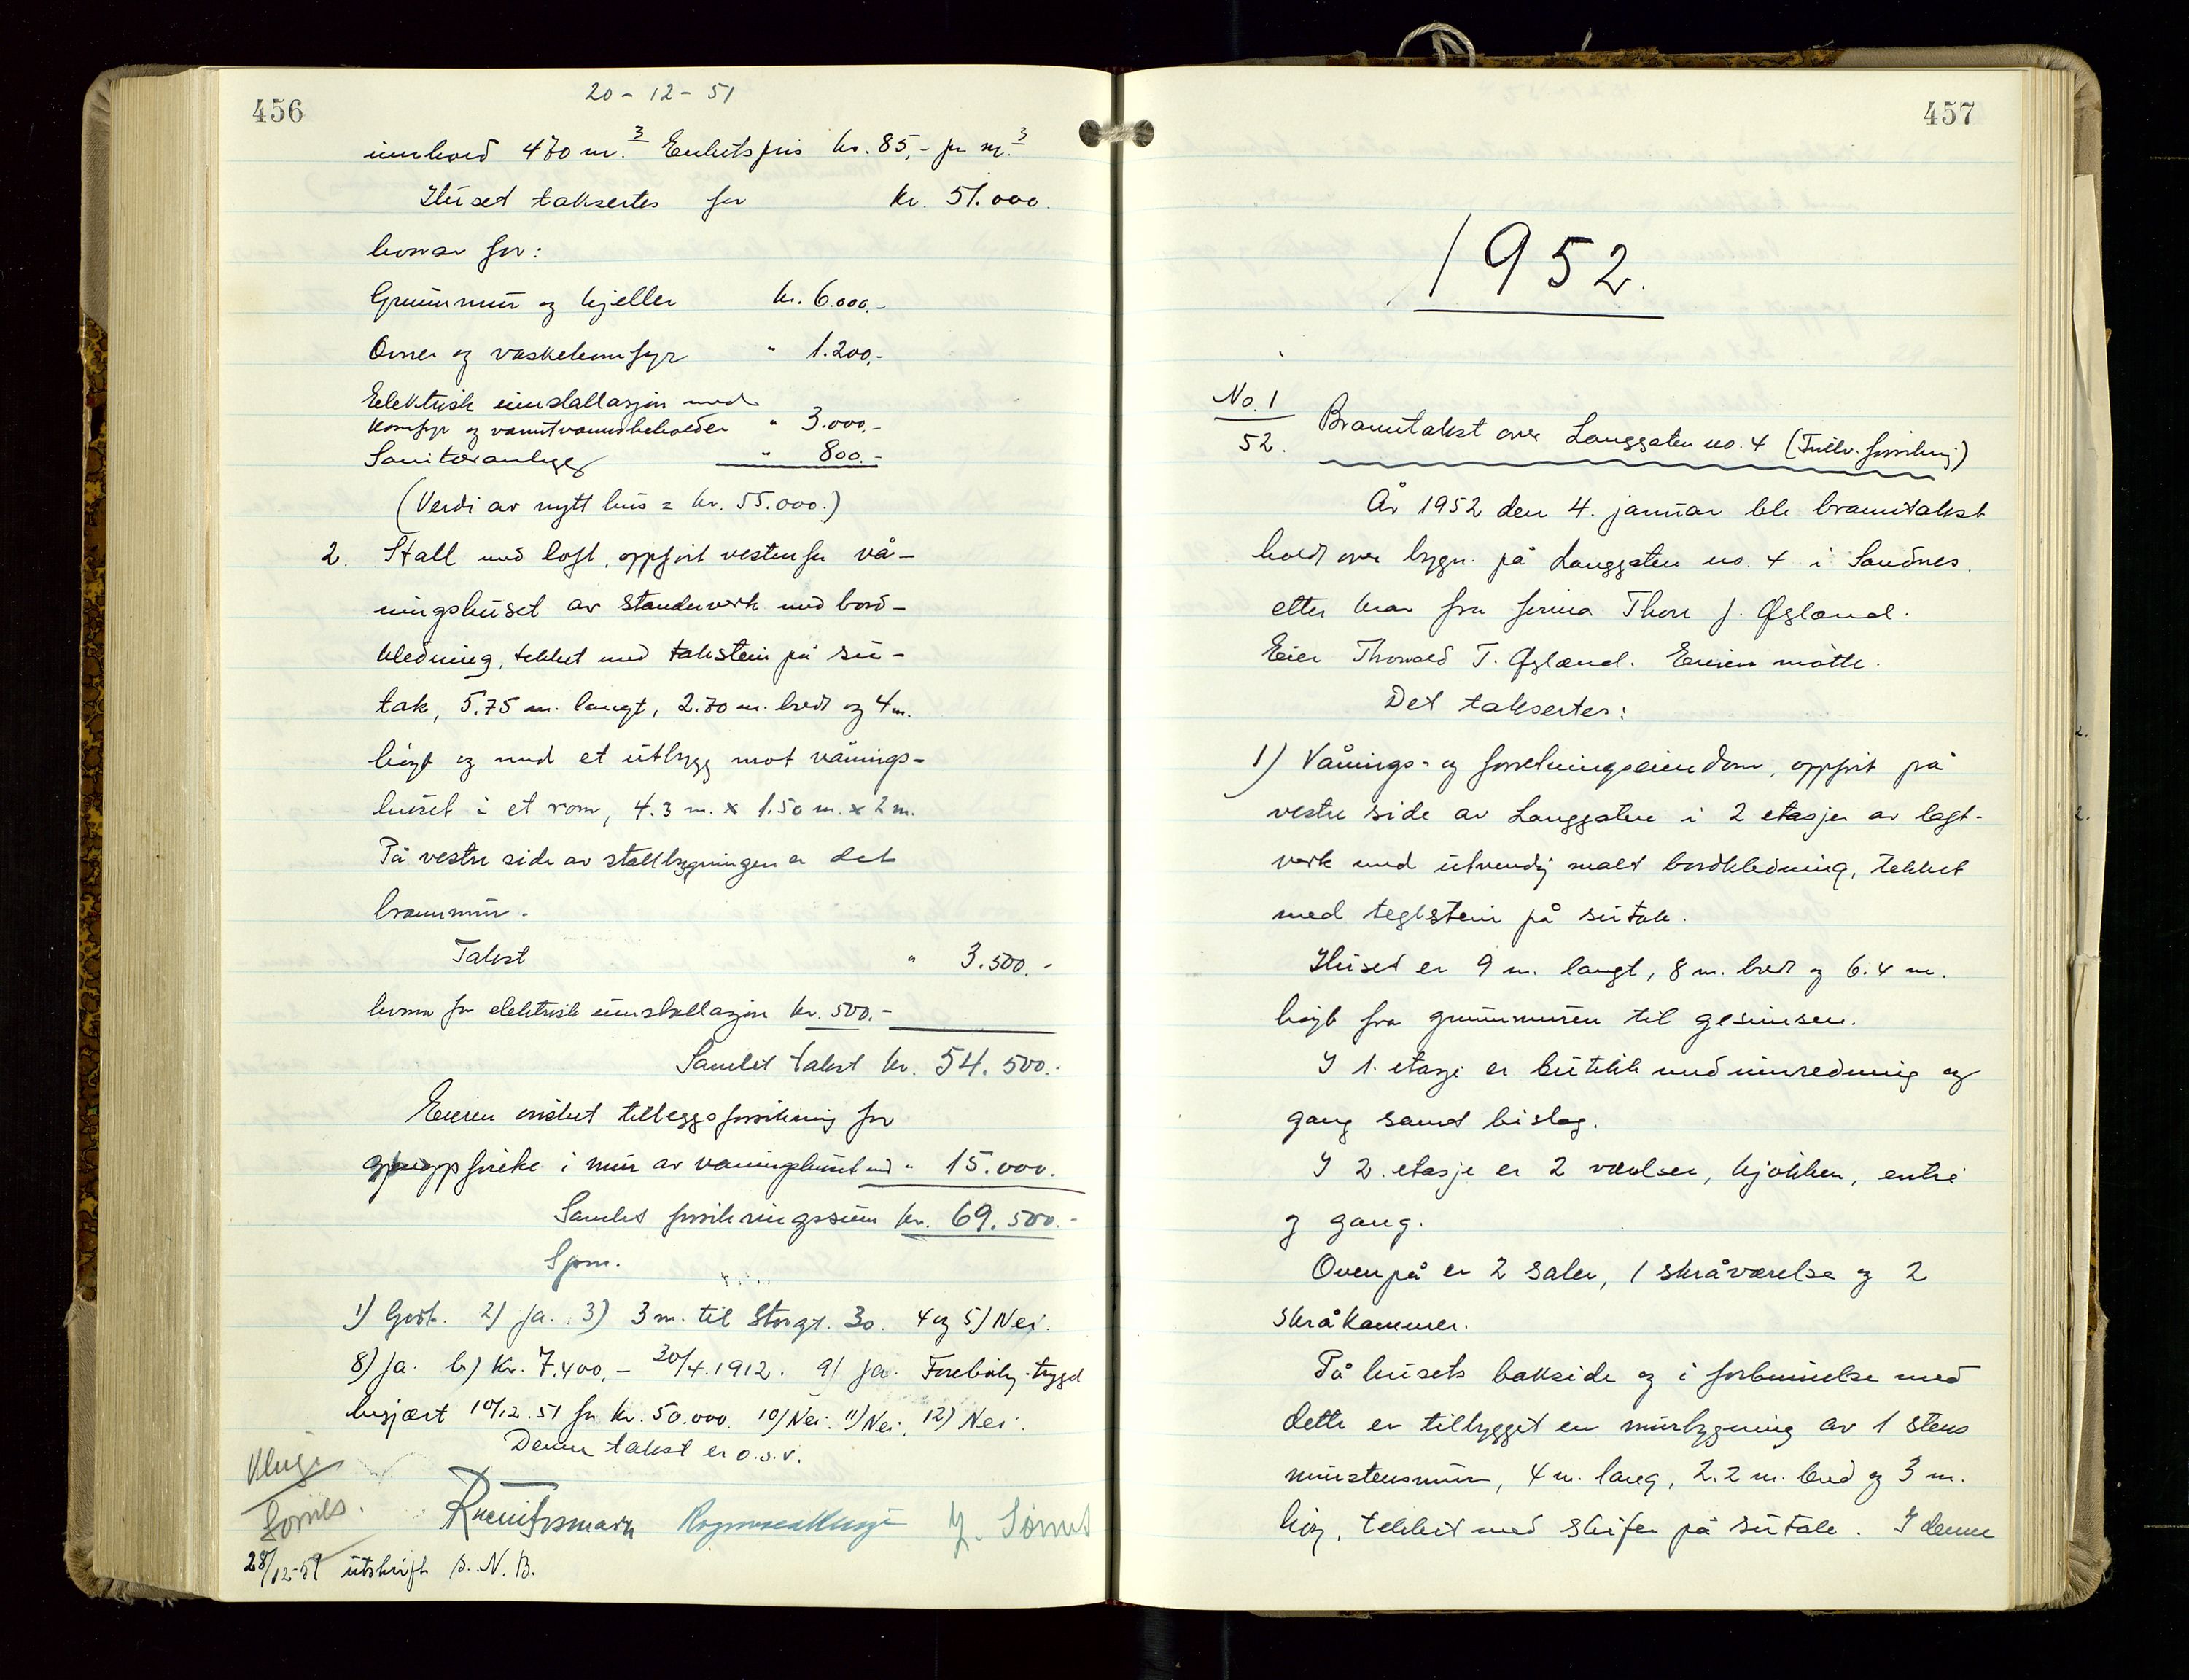 456
20-12-51
innhold 470 m.3 Enhetspris kr. 85,- pr m.3
Huset takseres for kr. 51.000.
hvorav for:
Grunnmur og kjeller kr. 6.000,-
Ovner og vaskekomfyr " 1.200,-
Elektrisk innstallasjon med
komfyr og varmtvannsbeholder " 3.000,-
Sanitæranlegg " 800.-
(Verdi av nytt hus = kr. 55.000.)
2. Stall med loft, oppført vestenfor vå-
ningshuset av standerverk med bord-
kledning, tekket med takstein på su-
tak, 5.75 m. langt, 2.70 m. bredt og 4 m.
høgt og med et utbygg mot vånings-
huset i et rom, 4.3 m. x 1.50 m. x 2 m.
På vestre side av stallbygningen er det
brannmur.
Takst " 3.500.-
hvorav for elektrisk innstallasjon kr. 500.-
Samlet takst kr. 54.500.-
Eieren ønsket tilleggsforsikring for
gjenoppførelse i mur av våningshuset med " 15.000.
Samlet forsikringssum kr. 69.500.-
Spm.
1) Godt. 2) Ja. 3) 3 m. til Storgt. 30. 4 og 5) Nei.
8) Ja. b) Kr. 7.400,- 30/4.1912. 9) Ja. Forebyg. trygd
besjært 10/12.51 for kr. 50.000. 10) Nei. 11) Nei. 12) Nei.
Denne takst er o.s.v.
Kluge
Sømes.
Rasmus Kluge
28/12-51 utskrift S. N. B.
457
1952.
No. 1
52.
Branntakst over Langgaten no. 4 (Frilv. forsikring)
År 1952 den 4. januar ble branntakst
holdt over bygn. på Langgaten no. 4 i Sandnes.
etter krav fra firma Thore J. Øgland.
Eier Thorvald T. Øgland. Eieren møtte.
Det takseres:
1) Vånings- og forretningseiendom, oppført på
vestre side av Langgaten i 2 etasjer av lagt-
verk med utvendig malt bordkledning, tekket
med teglstein på sutak.
Huset er 9 m. langt, 8 m. bredt og 6.4 m.
høgt fra grunnmuren til gesimsen.
I 1. etasje er butikk med innredning og
gang samt bislag.
I 2. etasje er 2 værelser, kjøkken, entré
og gang.
Ovenpå er 2 saler, 1 skråværelse og 2
skråkammer.
På husets bakside og i forbindelse med
dette er tilbygget en murbygning av 1 stens
murstensmur, 4 m. lang, 2.2 m. bred og 3 m.
høg, tekket med skifer på sutak. I denne